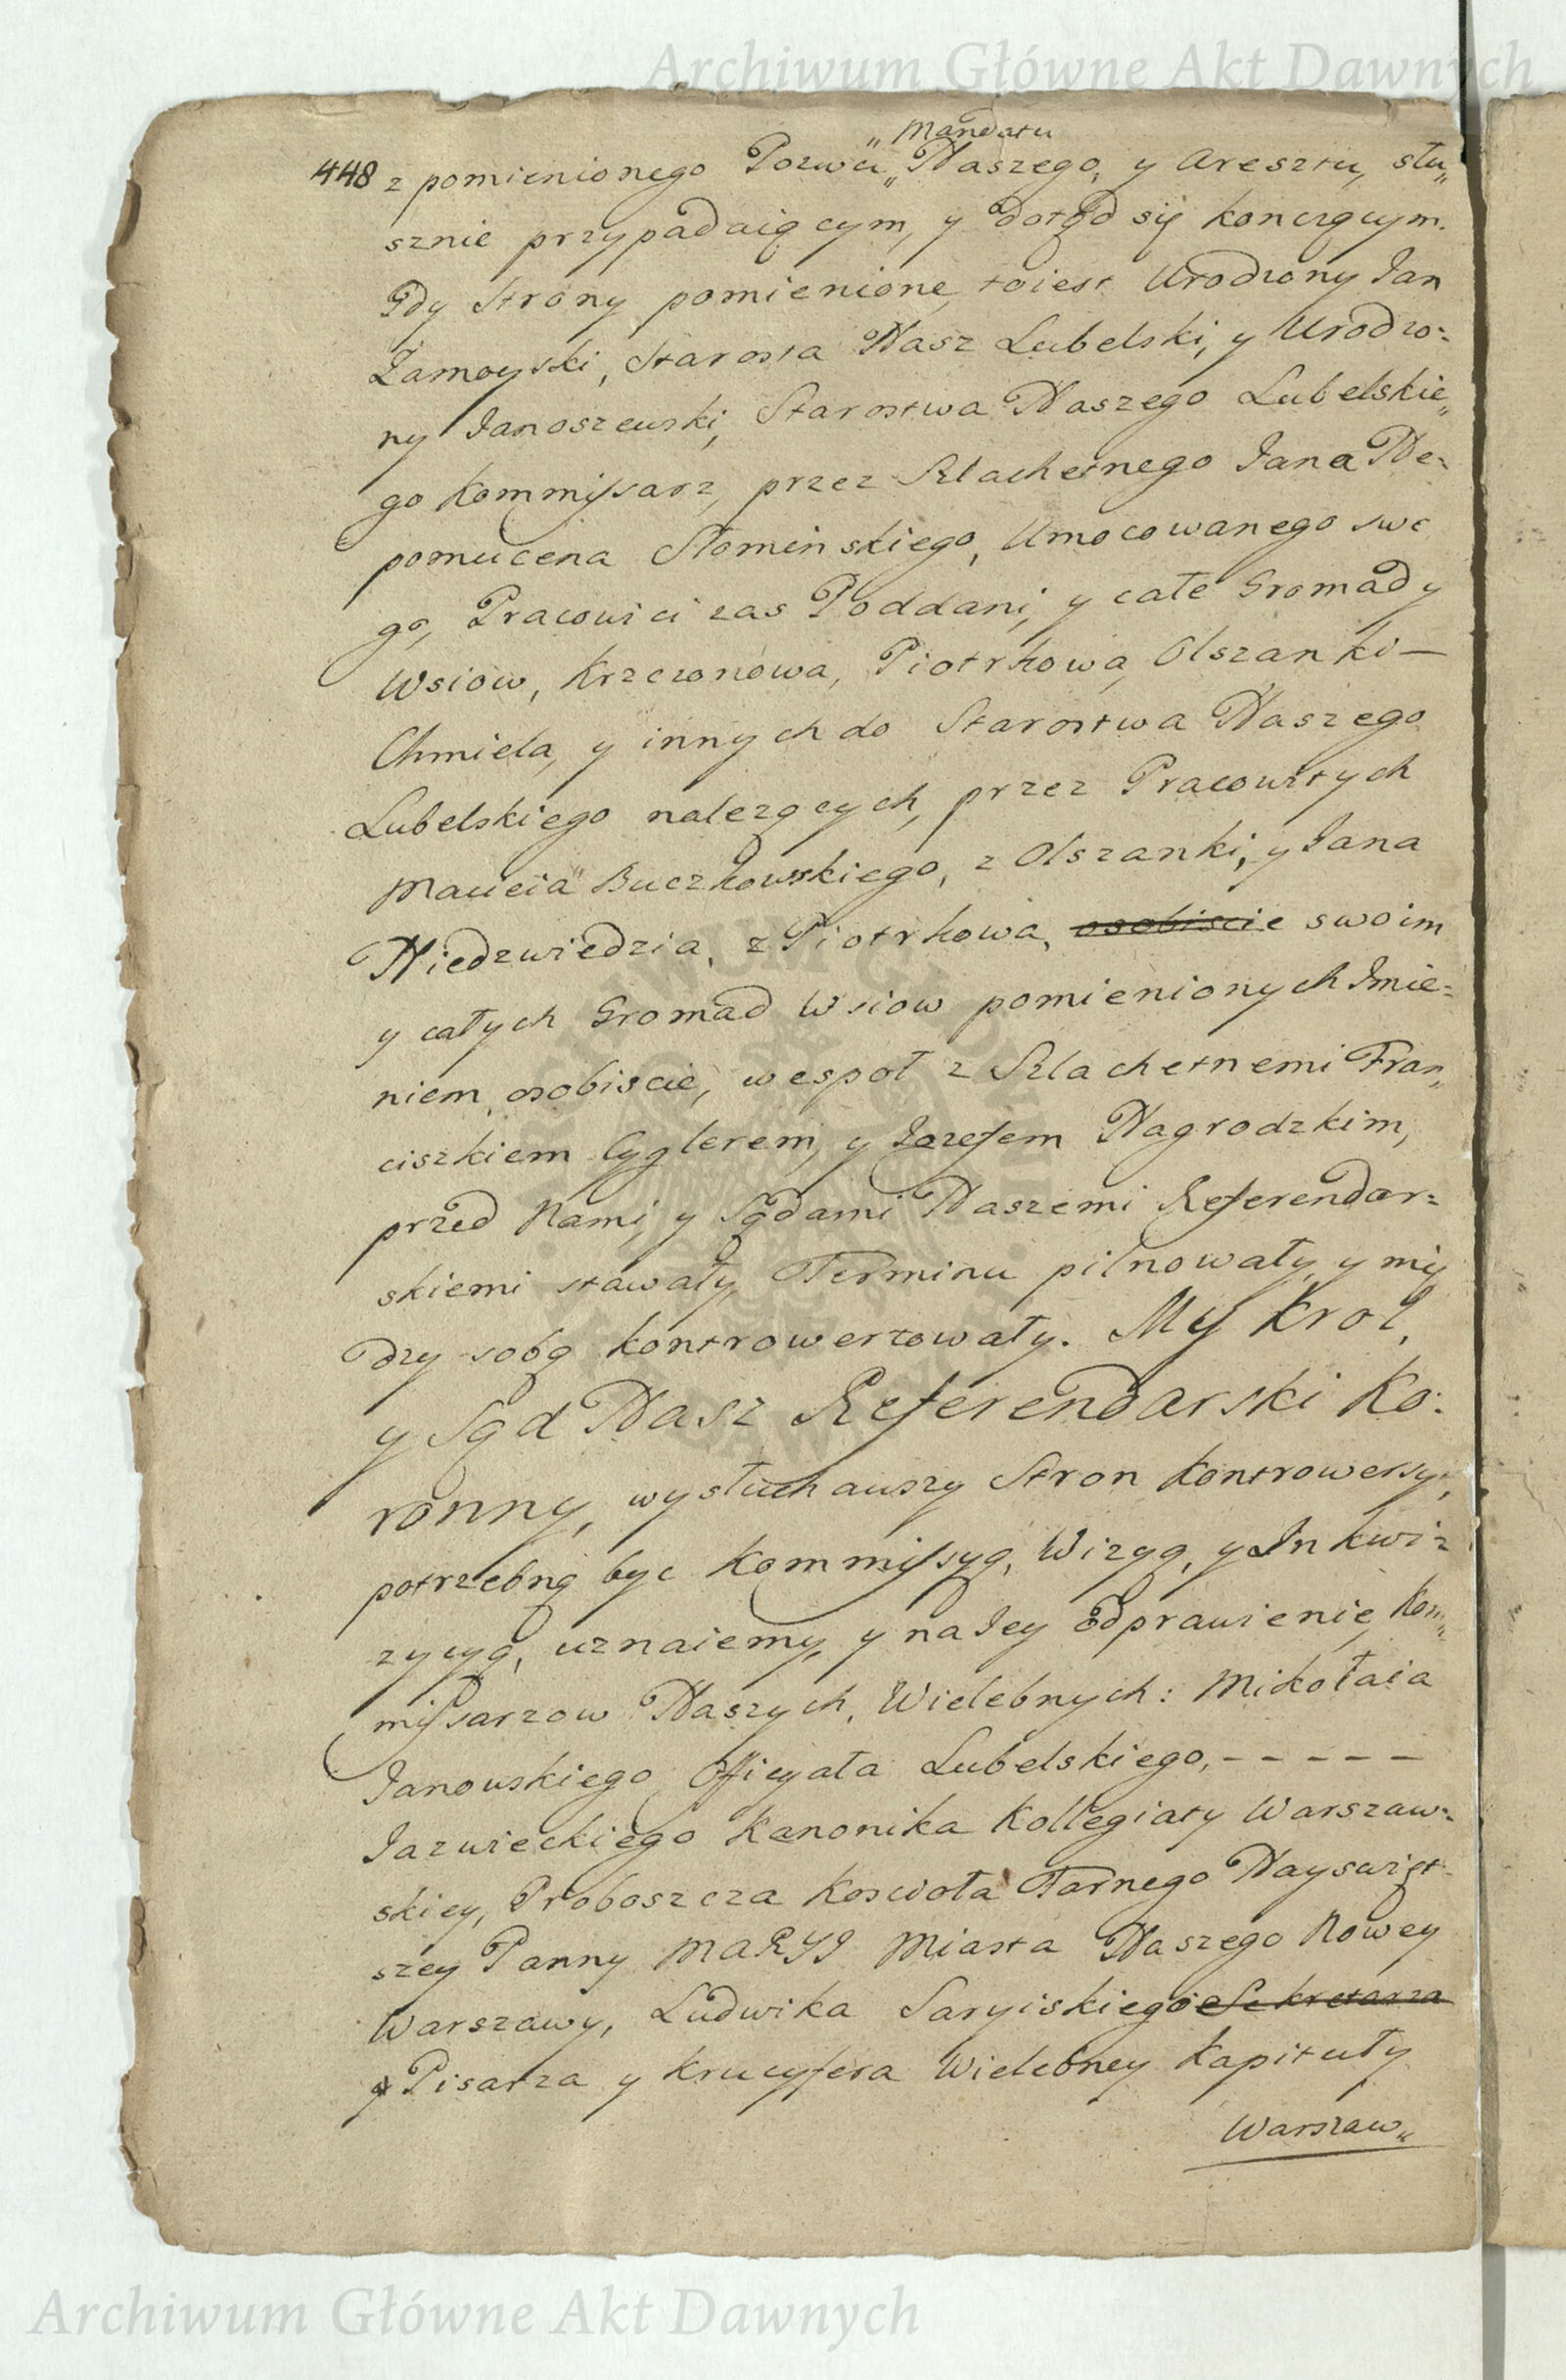 Archiwum Główne Akt Dawnych
„ Mandatu
448 z pomienionego Pozwu „ Naszego, y Aresztu, słu„
sznie przypadaiącym, y dotąd się konczącym.
Gdy Strony pomienione, toiest Urodzony Jan
Zamoyski, Starosta Nasz Lubelski, y Urodzo:
ny Janoszewski, Starostwa Naszego Lubelskie„
go Kommissarz, przez Szlachetnego Jana Ne:
pomucena Słominskiego, Umocowanego swe
go, Pracowici zas Poddani, y całe Gromady
Wsiow, Krzczonowa, Piotrkowa, Olszanki —
Chmiela, y innych do Starostwa Naszego
Lubelskiego nalezących, przez Pracowitych
Macieia Buczkowskiego, z Olszanki, y Jana
Niedzwiedzia, z Piotrkowa, osobiscie swoim
y całych Gromad Wsiow pomienionych Imie:
niem osobiscie, wespoł z Szlachetnemi Fran„
ciszkiem Cyglerem, y Jozefem Nagrodzkim,
przed Nami, y Sądami Naszemi Referendar:
skiemi stawały, Terminu pilnowały, y mię
dzy sobą kontrowertowały. My Krol,
y Sąd Nasz Referendarski Ko:
ronny, wysłuchauszy Stron Kontrowersyi,
potrzebną byc Kommissyą, Wizyą, y Inkwi:
zycyą, uznaiemy, y na Jey Odprawienie, Kom„
missarzow Naszych, Wielebnych: Mikołaia
Janowskiego Officyała Lubelskiego, - - - - -
Jazwieckiego Kanonika Kollegiaty Warszaw:
skiey, Proboszcza Koscioła Farnego Nayswięt
szey Panny MARYI Miasta Naszego Nowey
Warszawy, Ludwika Saryiskiego Sekretarza
y Pisarza y Krucyfera Wielebney Kapituły
Warszaw„
Archiwum Główne Akt Dawnych